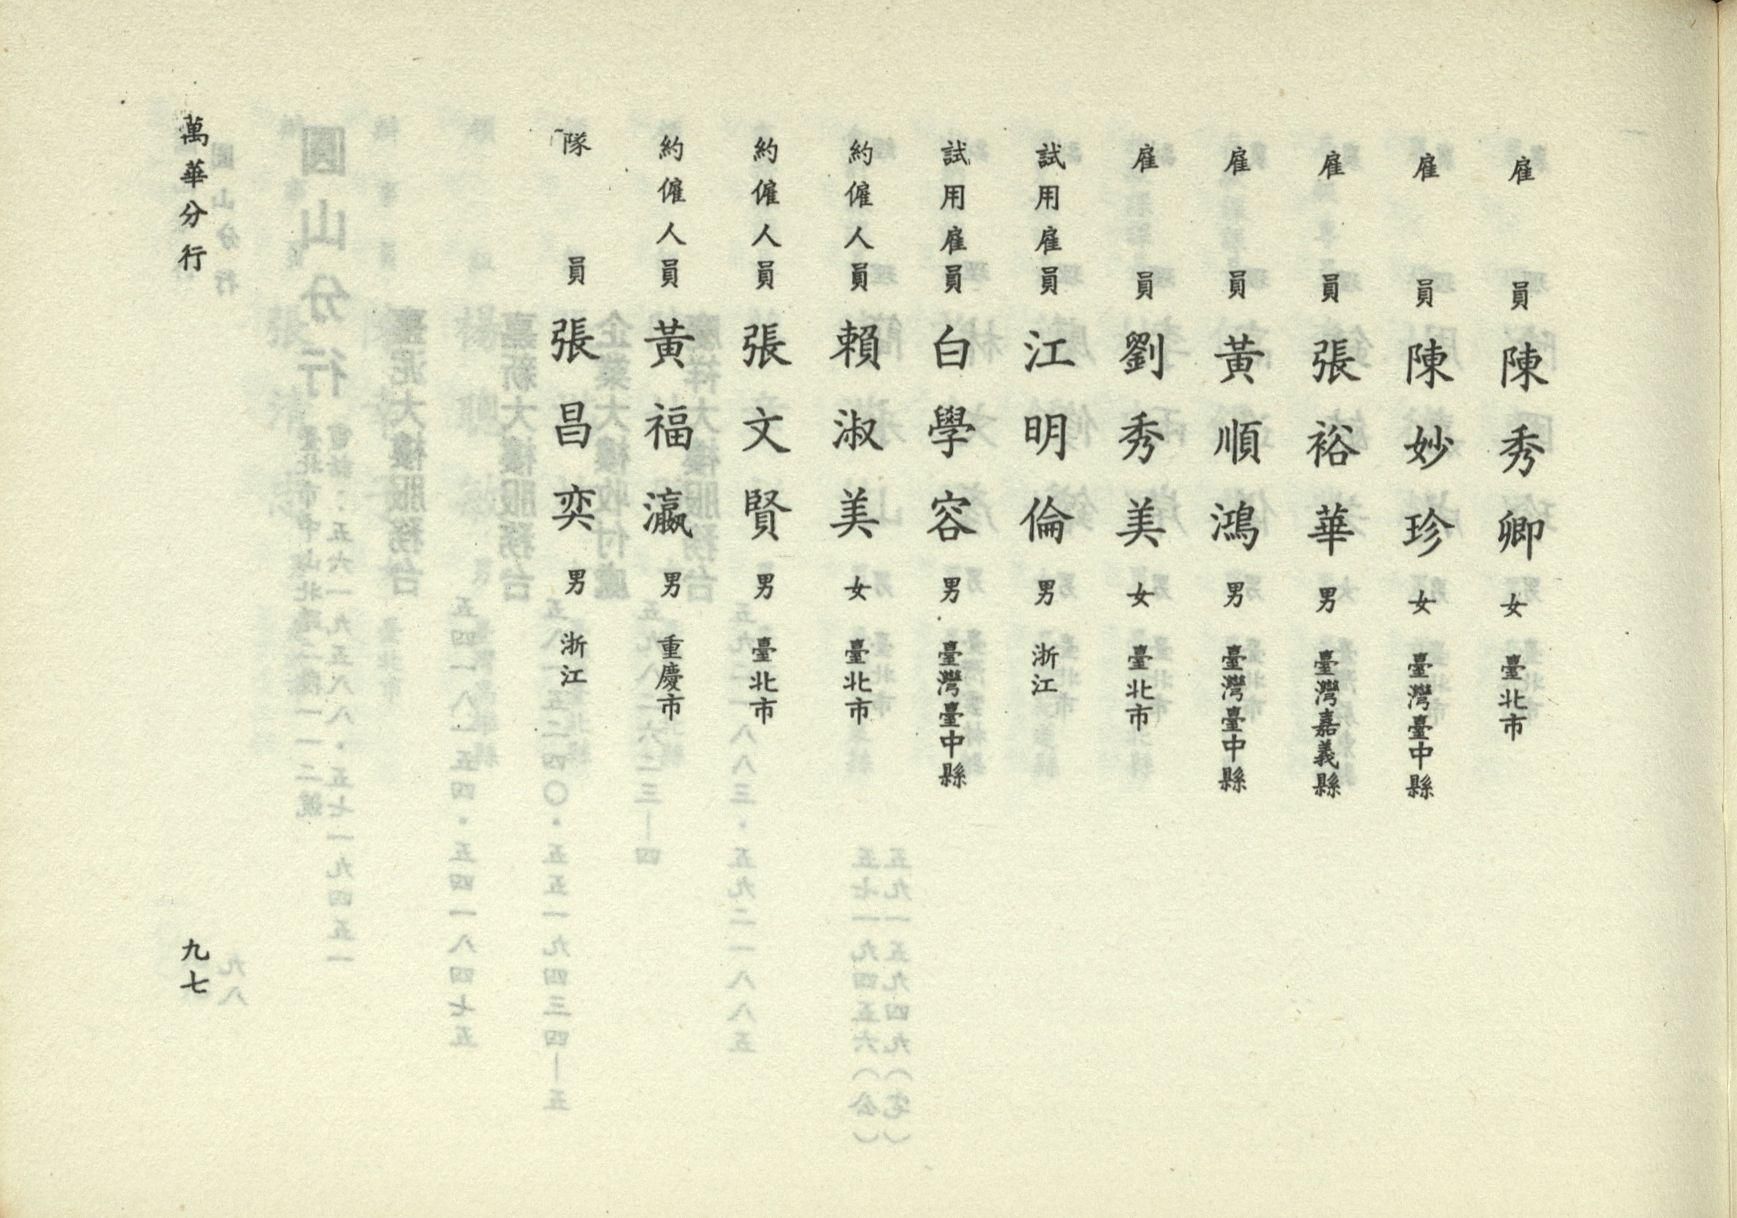 雇員 陳秀卿 女 臺北市
雇員 陳妙珍 女 臺灣臺中縣
雇員 張裕華 男 臺灣嘉義縣
雇員 黃順鴻 男 臺灣臺中縣
雇員 劉秀美 女 臺北市
試用雇員 江明倫 男 浙江
試用雇員 白學容 男 臺灣臺中縣
約僱人員 賴淑美 女 臺北市
約僱人員 張文賢 男 臺北市
約僱人員 黃福瀛 男 重慶市
隊員 張昌奕 男 浙江
萬華分行 九七